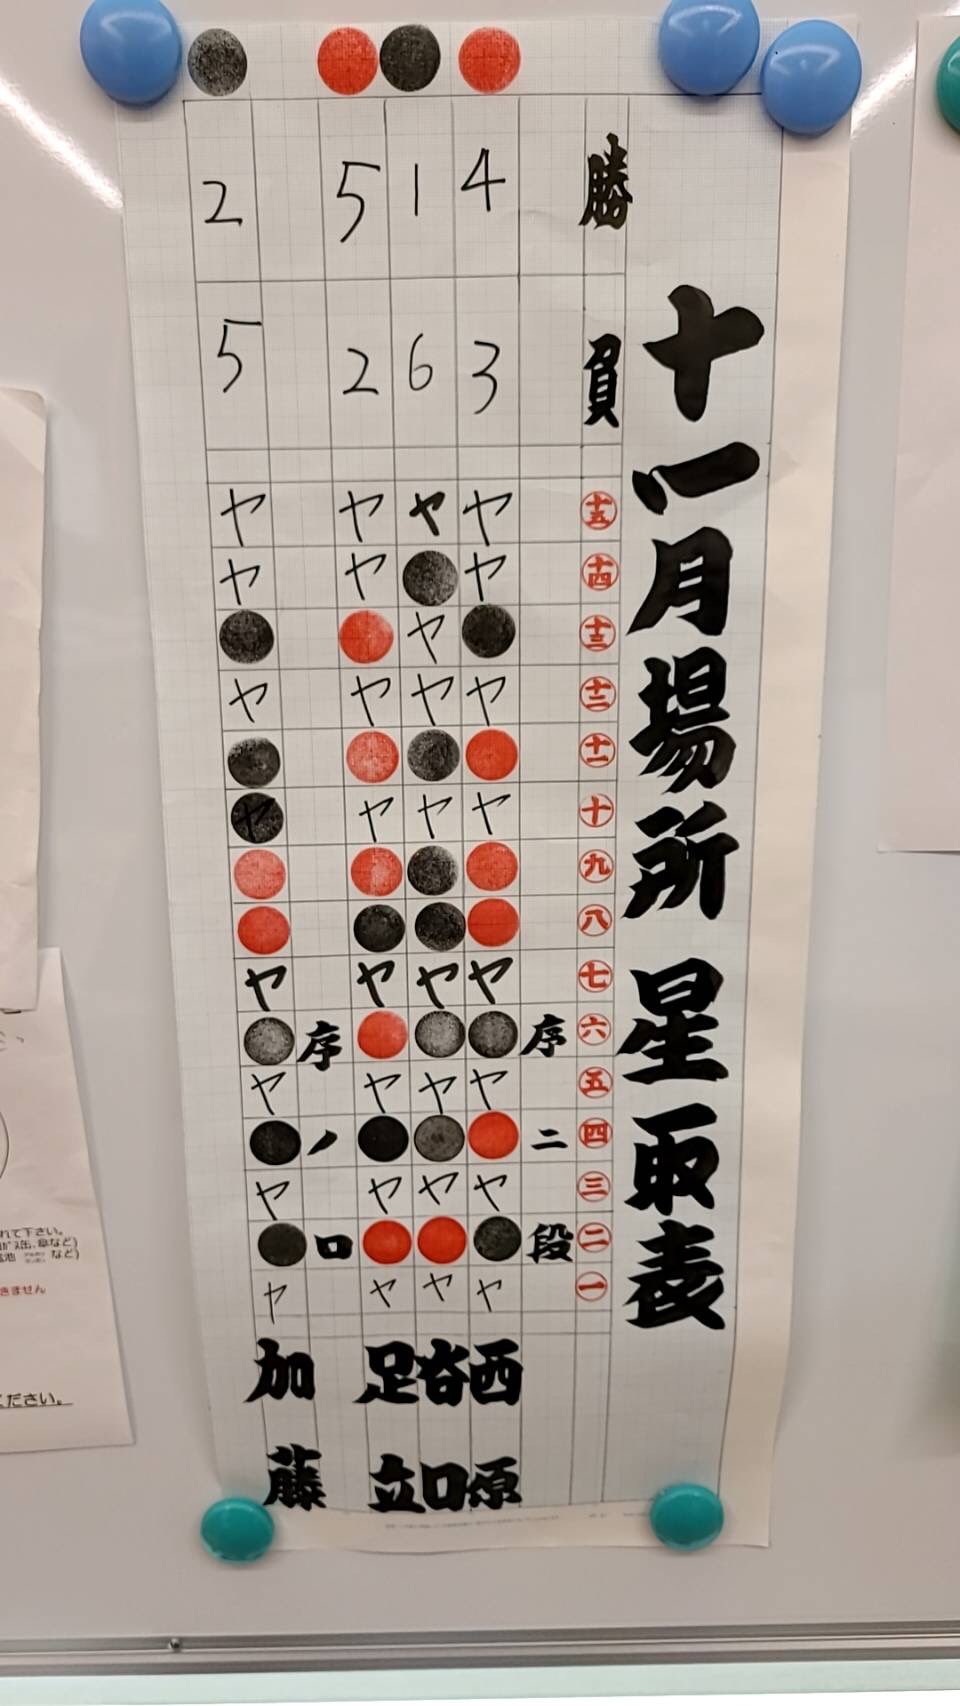 十一月場所 星取表
勝 負 十五 十四 十三 十二 十一 十 九 八 七 六 五 四 三 二 一
序二段
4 3 ヤ ヤ ヤ ヤ ヤ ヤ ヤ ヤ 西原
1 6 ヤ ヤ ヤ ヤ ヤ ヤ ヤ ヤ 沓口
5 2 ヤ ヤ ヤ ヤ ヤ ヤ ヤ ヤ 足立
序ノ口
2 5 ヤ ヤ ヤ ヤ ヤ ヤ ヤ ヤ 加藤
れて下さい。
など)
など)
きません
ください。